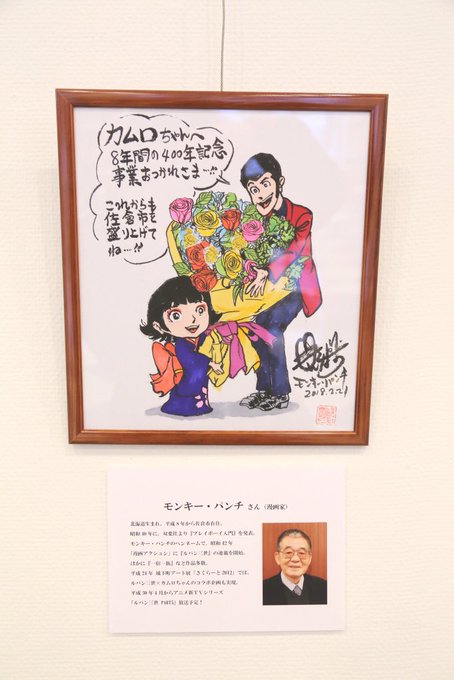 カムロちゃんへ
8年間の400年記念
事業おつかれさま…!!
これからも
佐倉市を
盛り上げて
ね…!!
モンキー・パンチ
2018.2.21
モンキー・パンチ さん（漫画家）
北海道生まれ。平成8年から佐倉市在住。
昭和40年に、双葉社より『プレイボーイ入門』を発表。
モンキー・パンチのペンネームで、昭和42年
「漫画アクション」に『ルパン三世』の連載を開始。
ほかに『一宿一飯』など作品多数。
平成24年 城下町アート展「さくらーと2012」では、
ルパン三世×カムロちゃんのコラボ企画も実現。
平成30年4月からアニメ新TVシリーズ
「ルパン三世 PART5」放送予定！